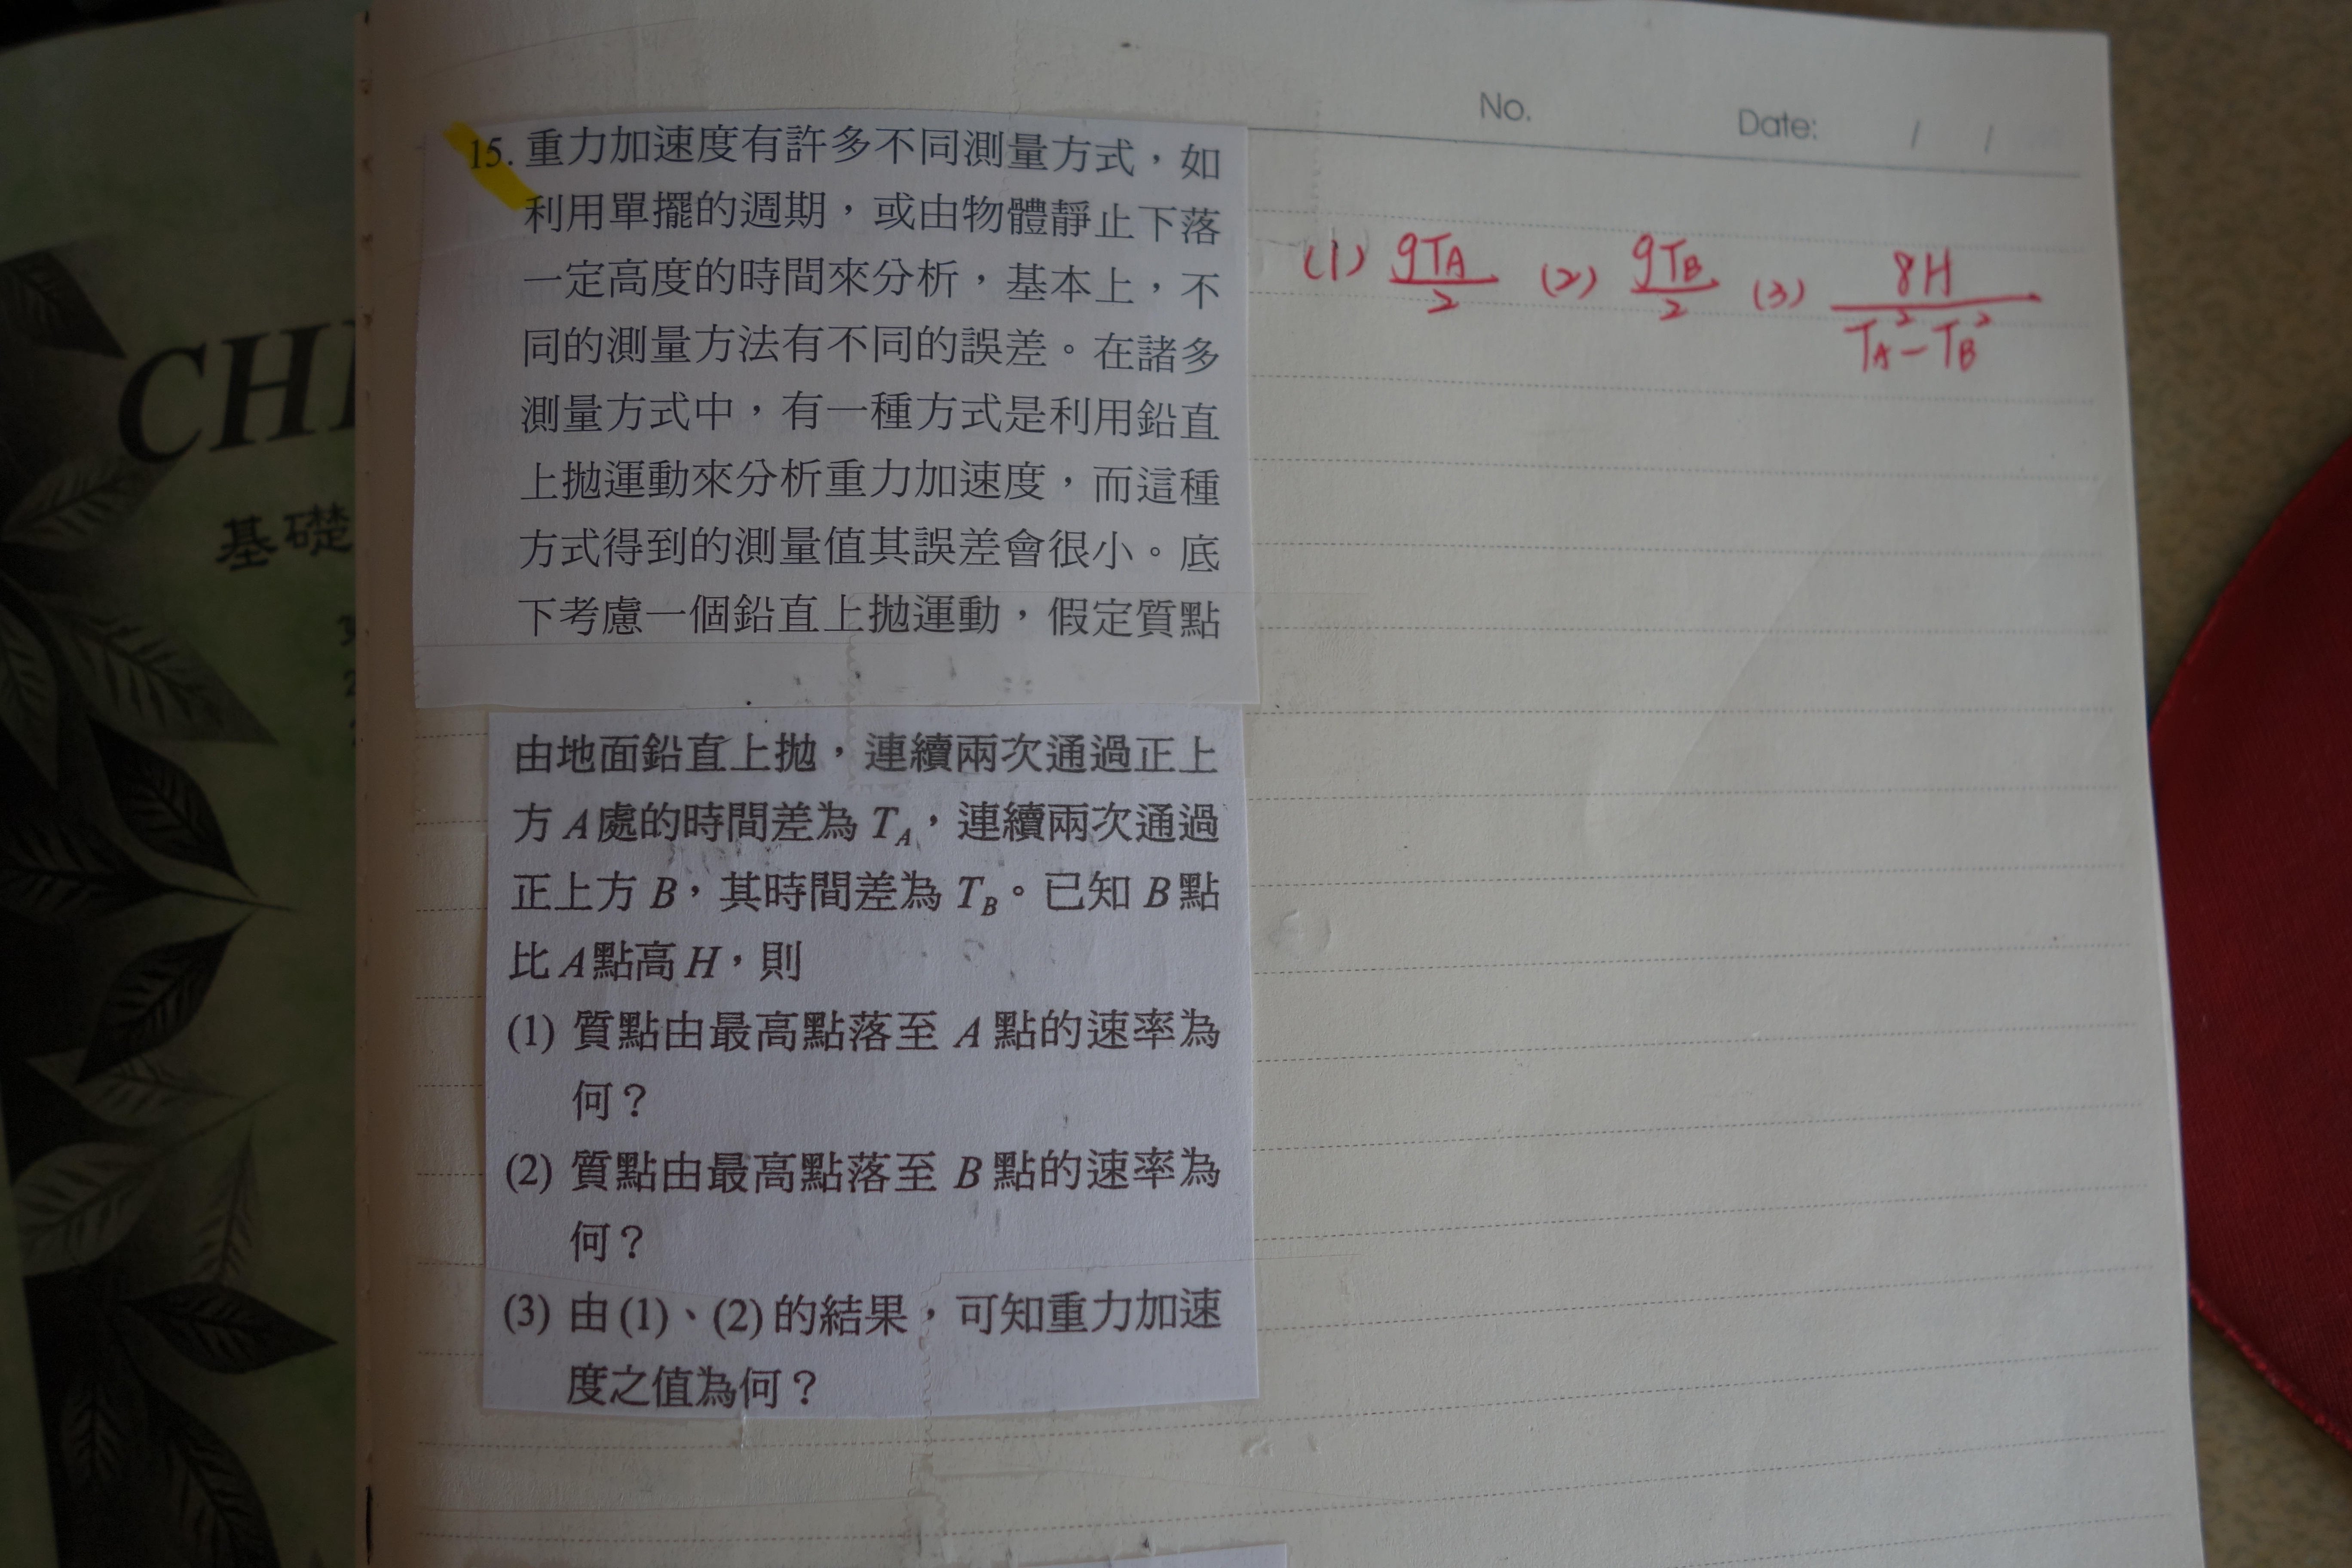 CH
基礎
No.
Date: / /
15. 重力加速度有許多不同測量方式，如
利用單擺的週期，或由物體靜止下落
一定高度的時間來分析，基本上，不
同的測量方法有不同的誤差。在諸多
測量方式中，有一種方式是利用鉛直
上拋運動來分析重力加速度，而這種
方式得到的測量值其誤差會很小。底
下考慮一個鉛直上拋運動，假定質點
由地面鉛直上拋，連續兩次通過正上
方 A 處的時間差為 T_A，連續兩次通過
正上方 B，其時間差為 T_B。已知 B 點
比 A 點高 H，則
(1) 質點由最高點落至 A 點的速率為
何？
(2) 質點由最高點落至 B 點的速率為
何？
(3) 由 (1)、(2) 的結果，可知重力加速
度之值為何？
(1) gT_A/2 (2) gT_B/2 (3) 8H/(T_A² - T_B²)